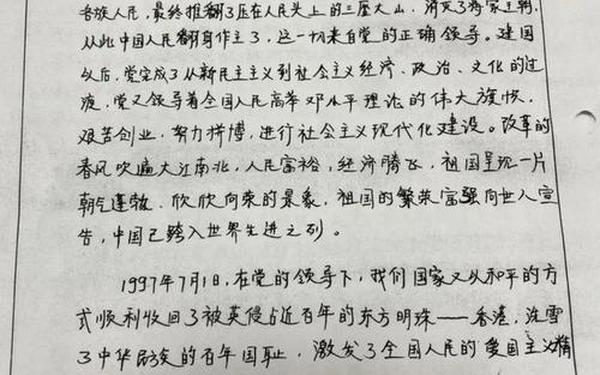 各族人民,最终推翻了压在人民头上的三座大山,消灭了蒋家王朝,
从此中国人民翻身作主了,这一切来自党的正确领导。建国
以后,党完成了从新民主主义到社会主义经济、政治、文化的过
渡,党又领导着全国人民高举邓小平理论的伟大旗帜,
艰苦创业,努力拼博,进行社会主义现代化建设。改革的
春风吹遍大江南北,人民富裕,经济腾飞,祖国呈现一片
朝气蓬勃、欣欣向荣的景象,祖国的繁荣富强向世人宣
告,中国已跨入世界先进之列。
1997年7月1日,在党的领导下,我们国家又以和平的方
式顺利收回了被英侵占近百年的东方明珠——香港,洗雪
了中华民族的百年国耻,激发了全国人民的爱国主义精